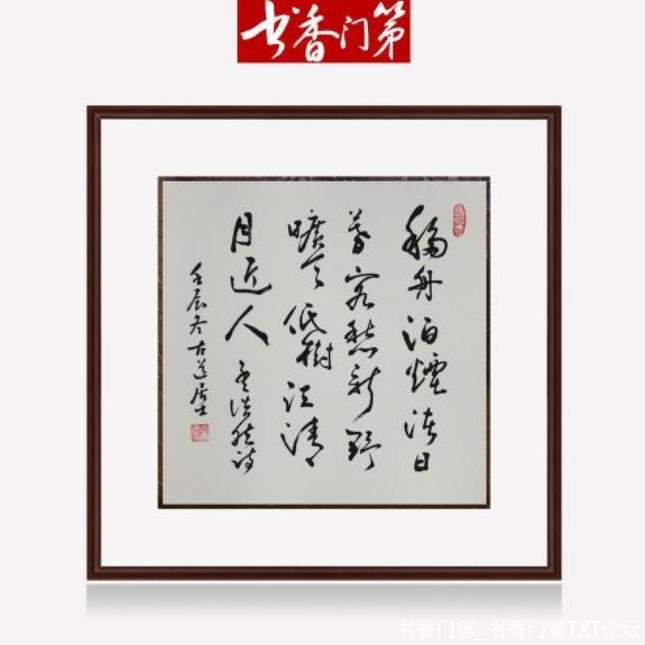 书香门第
移舟泊煙渚日
暮客愁新野
曠天低樹江清
月近人 孟浩然诗
壬辰冬古道居士
书香门第_书香门第TXT论坛